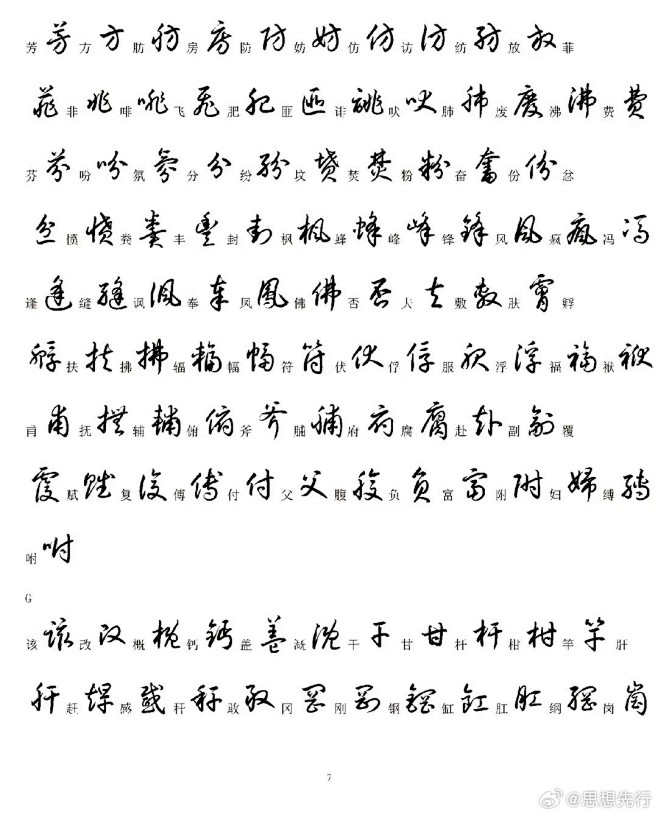 芳 芳 方 方 肪 肪 房 房 防 防 妨 妨 仿 仿 访 訪 纺 紡 放 放 菲
菲 非 非 啡 啡 飞 飛 肥 肥 匪 匪 诽 誹 吠 吠 肺 肺 废 廢 沸 沸 费 費
芬 芬 吩 吩 氛 氛 分 分 纷 紛 坟 墳 焚 焚 粉 粉 奋 奮 份 份 忿
忿 愤 憤 粪 糞 丰 豐 封 封 枫 楓 蜂 蜂 峰 峰 锋 鋒 风 風 疯 瘋 冯 馮
逢 逢 缝 縫 讽 諷 奉 奉 凤 鳳 佛 佛 否 否 夫 夫 敷 敷 肤 膚 孵
孵 扶 扶 拂 拂 辐 輻 幅 幅 符 符 伏 伏 俘 俘 服 服 浮 浮 福 福 袱 袱
甫 甫 抚 撫 辅 輔 俯 俯 斧 斧 脯 脯 府 府 腐 腐 赴 赴 副 副 覆
覆 赋 賦 复 復 傅 傅 付 付 父 父 腹 腹 负 負 富 富 附 附 妇 婦 缚 縛
咐 咐
G
该 該 改 改 概 概 钙 鈣 盖 蓋 溉 溉 干 干 甘 甘 杆 杆 柑 柑 竿 竿 肝
肝 赶 趕 感 感 秆 秆 敢 敢 冈 岡 刚 剛 钢 鋼 缸 缸 肛 肛 纲 綱 岗 崗
7
@思想先行